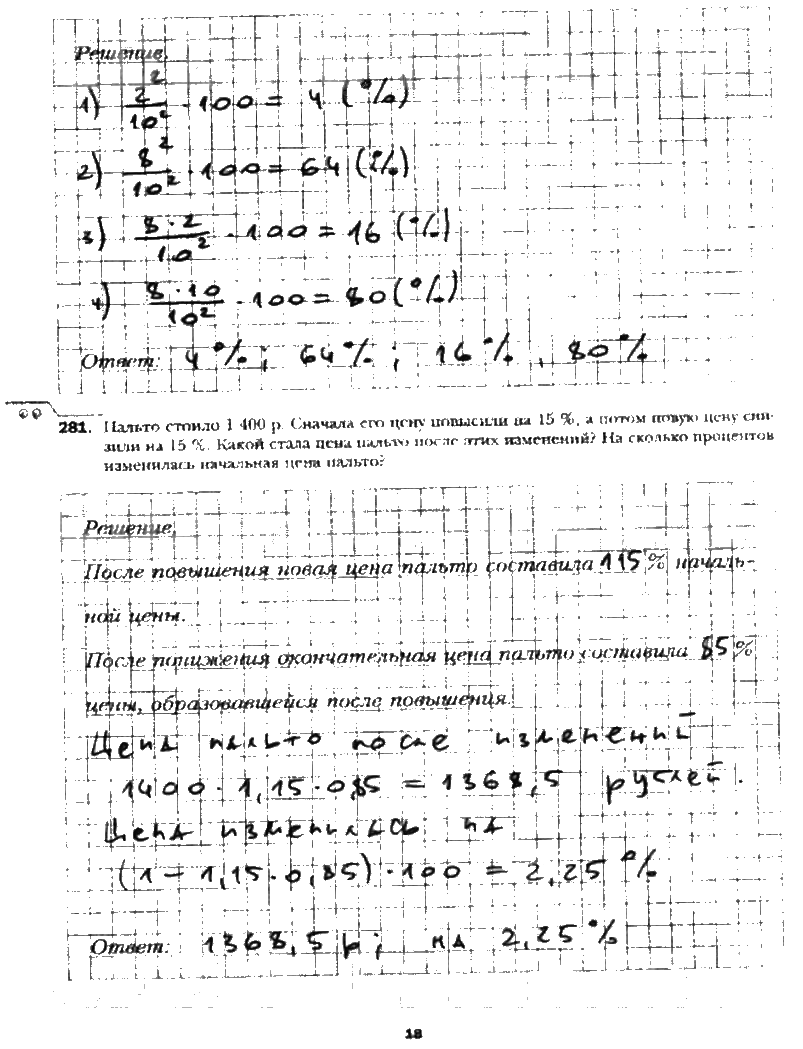 Решение.
1) 2²/10² · 100 = 4 (%)
2) 8²/10² · 100 = 64 (%)
3) 8·2/10² · 100 = 16 (%)
4) 8·10/10² · 100 = 80 (%)
Ответ: 4%; 64%; 16%, 80%
281. Пальто стоило 1 400 р. Сначала его цену повысили на 15 %, а потом новую цену сни-
зили на 15 %. Какой стала цена пальто после этих изменений? На сколько процентов
изменилась начальная цена пальто?
Решение.
После повышения новая цена пальто составила 115 % началь-
ной цены.
После понижения окончательная цена пальто составила 85 %
цены, образовавшейся после повышения.
Цена пальто после изменений
1400 · 1,15 · 0,85 = 1368,5 рублей.
Цена изменилась на
(1 – 1,15 · 0,85) · 100 = 2,25 %
Ответ: 1368,5 р; на 2,25 %
18